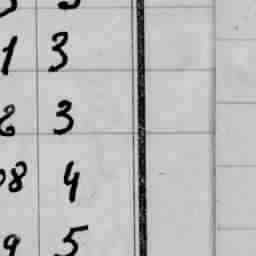 1 3
2 3
08 4
9 5